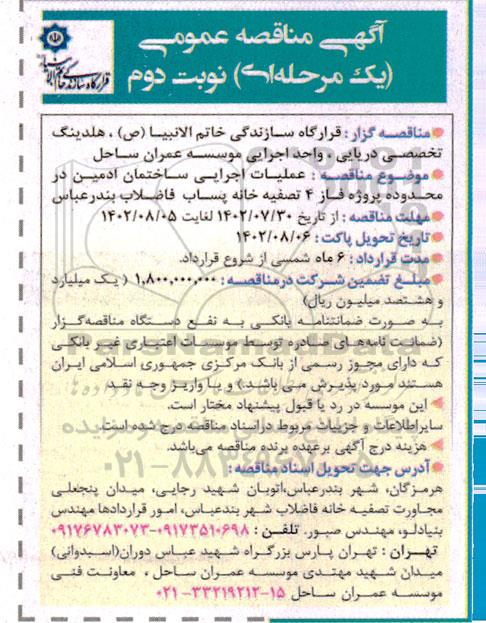 آگهی مناقصه عمومی
(یک مرحله‌ای) نوبت دوم
قرارگاه سازندگی خاتم الانبیا
مناقصه گزار: قرارگاه سازندگی خاتم الانبیا (ص) ، هلدینگ
تخصصی دریایی ، واحد اجرایی موسسه عمران ساحل
موضوع مناقصه : عملیات اجرایی ساختمان ادمین در
محدوده پروژه فاز ۴ تصفیه خانه پساب فاضلاب بندرعباس
مهلت مناقصه : از تاریخ ۱۴۰۲/۰۷/۳۰ لغایت ۱۴۰۲/۰۸/۰۵
تاریخ تحویل پاکت : ۱۴۰۲/۰۸/۰۶
مدت قرارداد : ۶ ماه شمسی از شروع قرارداد.
مبلغ تضمین شرکت درمناقصه : ۱,۸۰۰,۰۰۰,۰۰۰ ( یک میلیارد
و هشتصد میلیون ریال)
به صورت ضمانتنامه بانکی به نفع دستگاه مناقصه‌گزار
(ضمانت نامه‌های صادره توسط موسسات اعتباری غیر بانکی
که دارای مجوز رسمی از بانک مرکزی جمهوری اسلامی ایران
هستند مورد پذیرش می باشد.) و یا واریز وجه نقد
این موسسه در رد یا قبول پیشنهاد مختار است.
سایراطلاعات و جزییات مربوط دراسناد مناقصه درج شده است.
هزینه درج آگهی برعهده برنده مناقصه می‌باشد.
آدرس جهت تحویل اسناد مناقصه :
هرمزگان، شهر بندرعباس،اتوبان شهید رجایی، میدان پنجعلی
مجاورت تصفیه خانه فاضلاب شهر بندعباس، امور قراردادها مهندس
بنیادلو، مهندس صبور. تلفن : ۰۹۱۷۳۵۱۰۶۹۸-۰۹۱۷۶۷۸۳۰۷۳
تهران : تهران پارس بزرگراه شهید عباس دوران(اسبدوانی)
میدان شهید مهتدی موسسه عمران ساحل ، معاونت فنی
موسسه عمران ساحل ۱۵-۳۳۲۱۹۲۱۲-۰۲۱